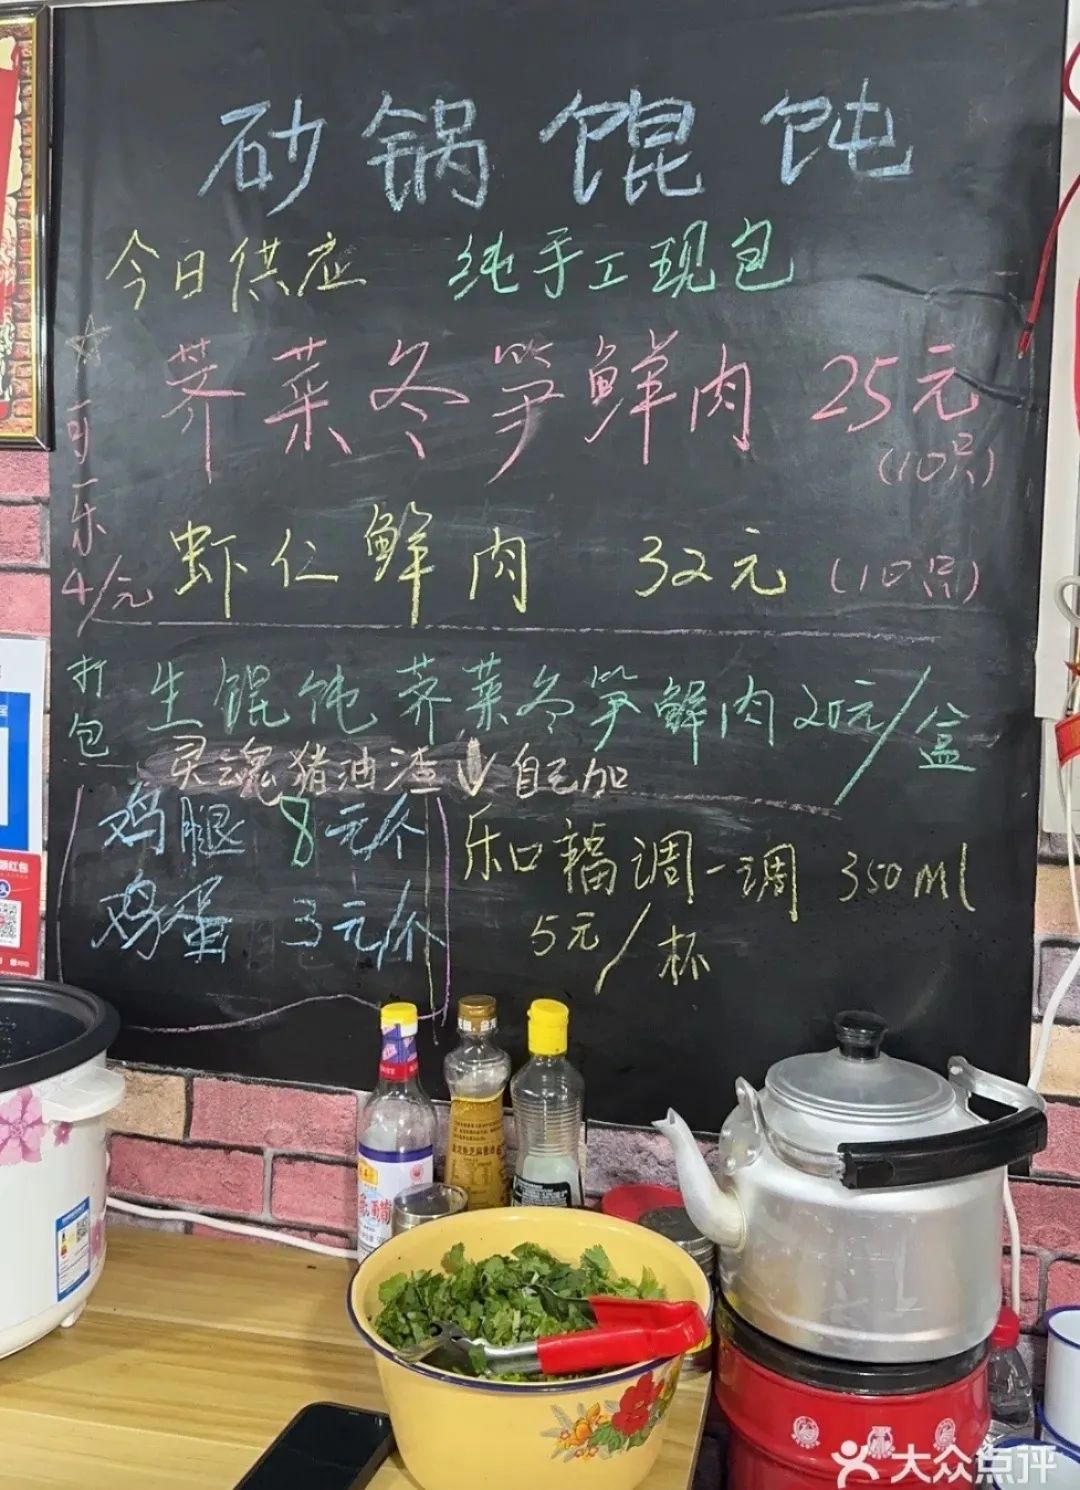 砂锅馄饨
今日供应 纯手工现包
荠菜冬笋鲜肉 25元
(10只)
虾仁鲜肉 32元 (10只)
可乐
4/元
打包
生馄饨荠菜冬笋鲜肉20元/盒
灵魂猪油渣↓自己加
鸡腿 8元/个
鸡蛋 3元/个
乐口福调一调 350ml
5元/杯
大众点评